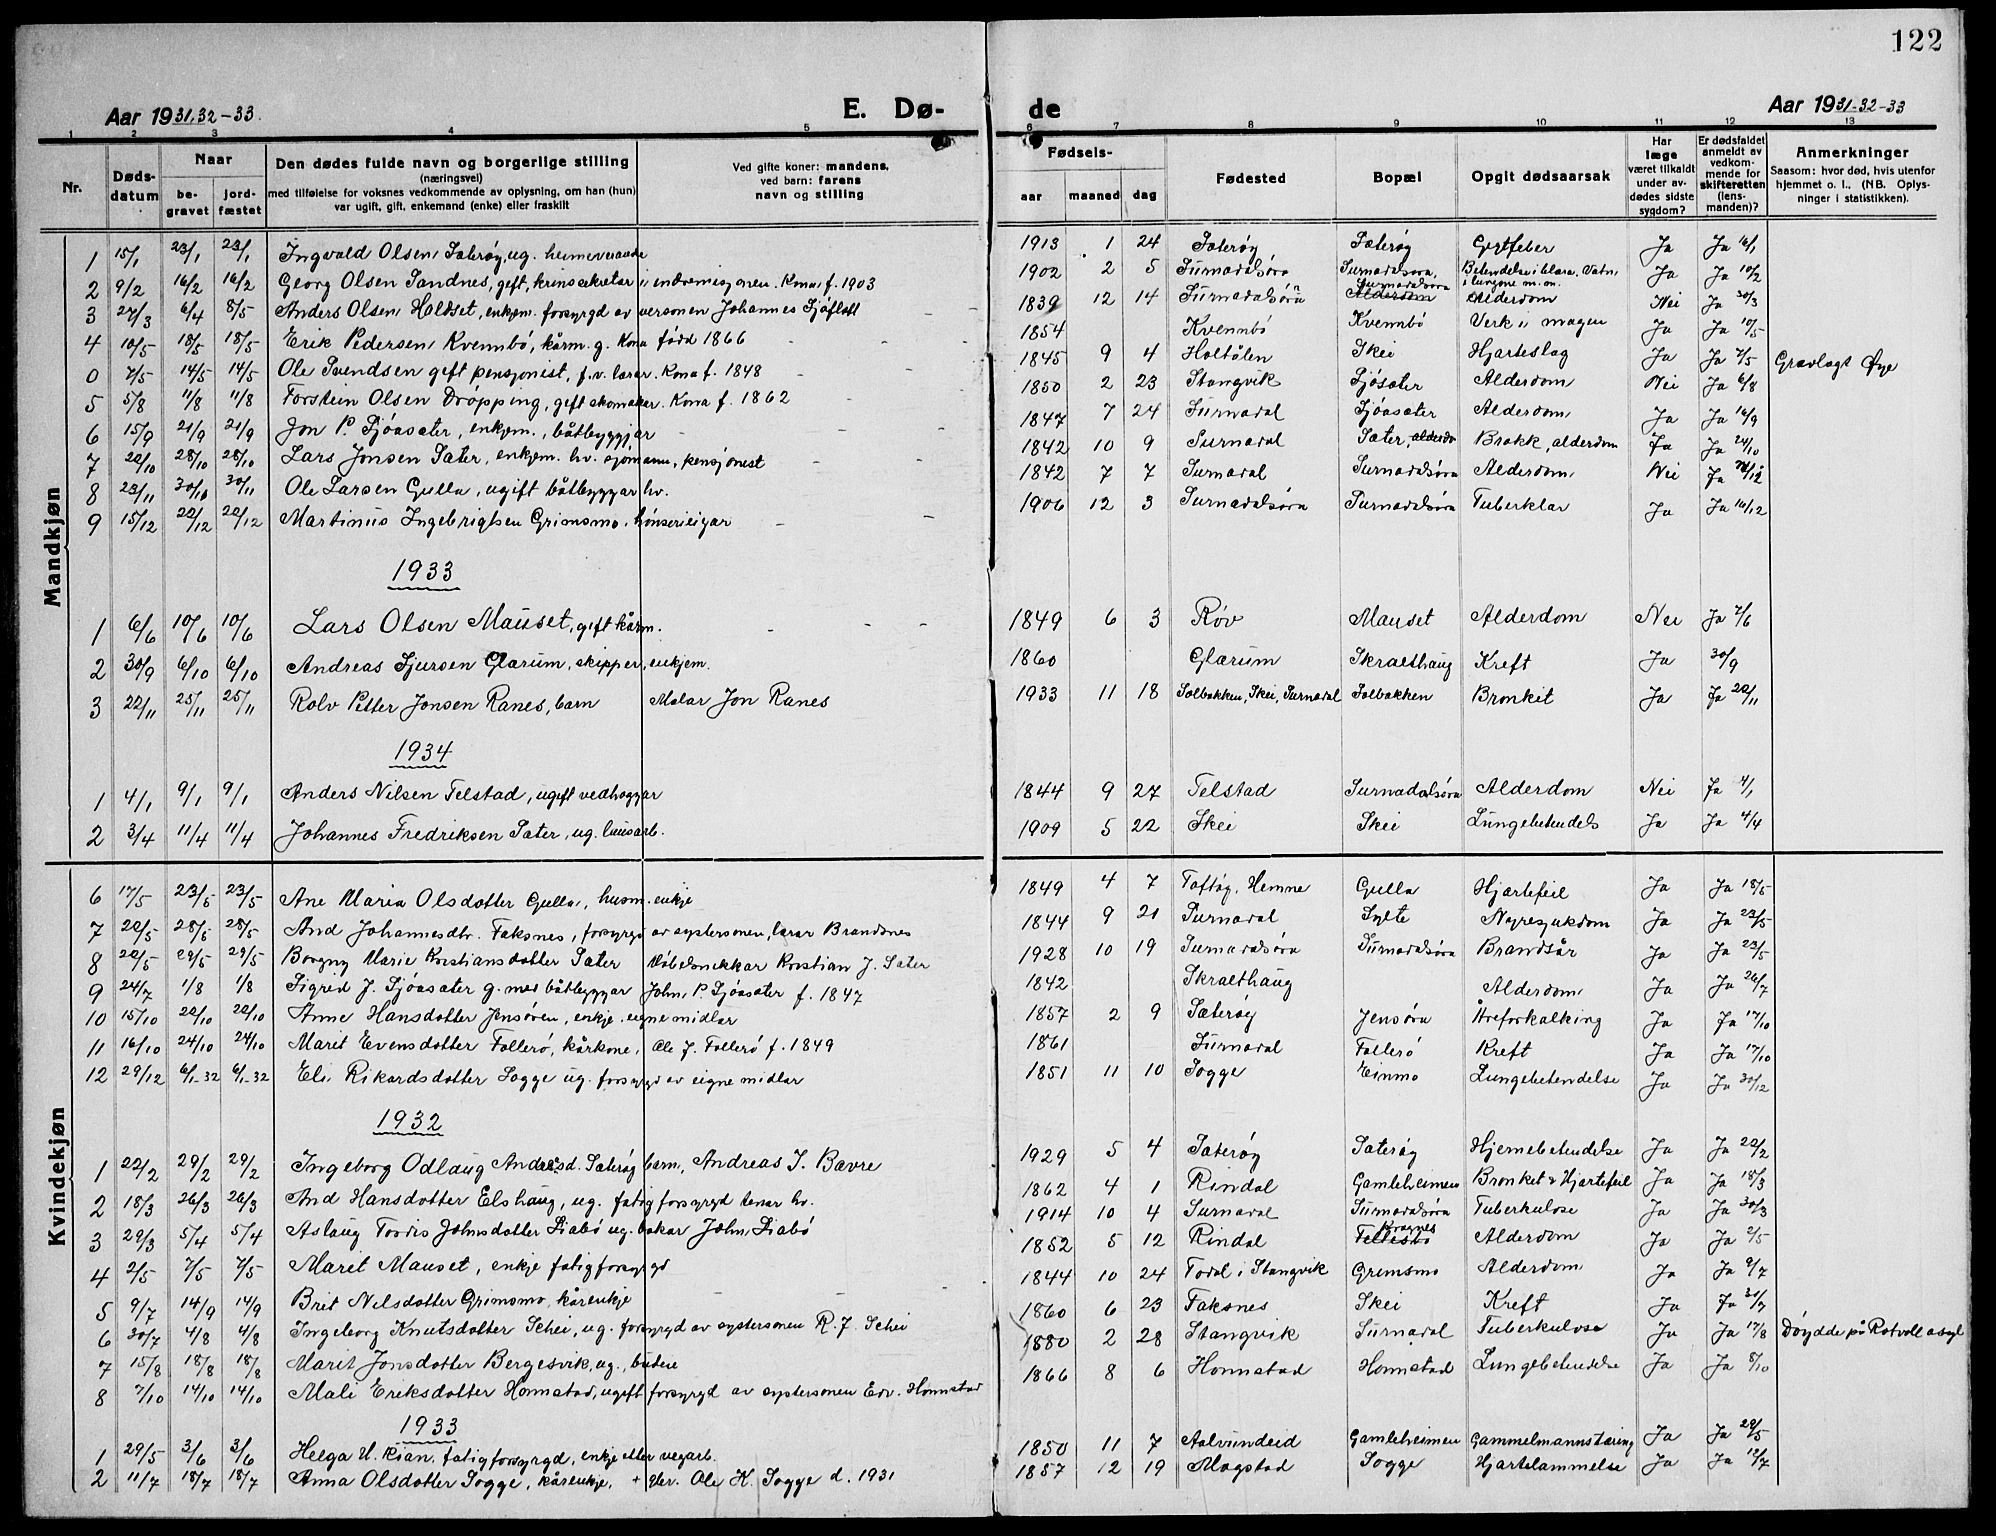 122
Aar 1931,32-33. E. Dø- de Aar 1931-32-33
1 2 3 4 5 6 7 8 9 10 11 12 13
Nr. Døds-datum Naar be-gravet jord-fæstet Den dødes fulde navn og borgerlige stilling (næringsvei) med tilføielse for voksnes vedkommende av oplysning, om han (hun) var ugift, gift, enkemand (enke) eller fraskilt Ved gifte koner: mandens, ved barn: farens navn og stilling Fødsels- aar maaned dag Fødested Bopæl Opgit dødsaarsak Har læge været tilkaldt under av-dødes sidste sygdom? Er dødsfaldet anmeldt av vedkom-mende for skifteretten (lens-manden)? Anmerkninger Saasom: hvor død, hvis utenfor hjemmet o. l., (NB. Oplys-ninger i statistikken).
Mandkjøn
1 15/1 23/1 23/1 Ingvald Olsen Sæterøy, ug. heimeverande 1913 1 24 Sæterøy Sæterøy Ja Ja 16/1
2 9/2 16/2 16/2 Georg Olsen Sandnes, gift, krinssekretær i indremisjonen. Kona f. 1903 1902 2 5 Surnadalsøra Surnadalsøra, Ja Ja 10/2
3 27/3 6/4 8/5 Anders Olsen Holdset, enkjem. forsyrgd av versonen Johannes Sjøfloll 1839 12 14 Surnadalsøra Surnadalsøra Alderdom Nei Ja 30/3
4 10/5 18/5 18/5 Erik Pedersen Kvennbø, kårm. g. Kona fødd 1866 1854 Kvennbø Kvennbø Verk i magen Ja Ja 10/5
0 7/5 14/5 14/5 Ole Svendsen gift pensjonist, f.v. lærar. Kona f. 1848 1845 9 4 Holtålen Skei Hjarteslag Ja Ja 7/5 Gravlagt Øye
5 5/8 11/8 11/8 Torstein Olsen Drøpping, gift skomakar. Kona f. 1862 1850 2 23 Stangvik Sjøsæter Alderdom Nei Ja 6/8
6 15/9 21/9 21/9 Jon P. Sjøasæter, enkjem., båtbyggjar 1847 7 24 Surnadal Sjøasæter Alderdom Ja Ja 16/9
7 20/10 28/10 28/10 Lars Jonsen Sæter, enkjem. hv. sjømann, pensjonist 1842 10 9 Surnadal Sæter, Brokk, alderdom Ja Ja 24/10
8 23/11 30/11 30/11 Ole Larsen Gulla, ugift båtbyggjar hv. 1842 7 7 Surnadal Surnadalsøra Alderdom Nei Ja
9 15/12 22/12 22/12 Martinus Ingebrigtsen Grimsmo, hønserieigar 1906 12 3 Surnadalsøra Surnadalsøra Tuberklar Ja Ja 16/12
1933
1 6/6 10/6 10/6 Lars Olsen Mauset, gift kårm. 1849 6 3 Røv Mauset Alderdom Nei Ja 7/6
2 30/9 6/10 6/10 Andreas Sjursen Glærum, skipper, enkjem. 1860 Glærum Skralthaug Kreft Ja 30/9
3 22/11 25/11 25/11 Rolv Petter Jonsen Ranes, barn Malar Jon Ranes 1933 11 18 Solbakken, Skei, Surnadal Solbakken Bronkit Ja Ja 22/11
1934
1 4/1 9/1 9/1 Anders Nilsen Telstad, ugift vedhoggar 1844 9 27 Telstad Surnadalsøra Alderdom Nei Ja 4/1
2 3/4 11/4 11/4 Johannes Fredriksen Sæter, ug. lausarb. 1909 5 22 Skei Skei Lungebetendels Ja Ja 4/4
Kvindekjøn
6 17/5 23/5 23/5 Ane Maria Olsdotter Gulla, husm. enkje 1849 4 7 Toftøy, Hemne Gulla Hjartefeil Ja Ja 18/5
7 22/5 28/5 28/5 And Johannesdtr. Faksnes, forsyrgd av systersonen, lærar Brandsnes 1844 9 21 Surnadal Sylte Nyresjukdom Ja Ja 22/5
8 22/5 29/5 29/5 Borgny Marie Kristiansdotter Sæter Møbelsnikkar Kristian J. Sæter 1928 10 19 Surnadalsøra Surnadalsøra Brandsår Ja Ja 23/5
9 24/7 1/8 1/8 Sigrid J. Sjøasæter g. med båtbyggjar John P. Sjøasæter f. 1847 1842 Skralthaug Alderdom Ja Ja 26/7
10 15/10 22/10 22/10 Anne Hansdotter Jensøren, enkje. eigne midlar 1857 2 9 Sæterøy Jensøra Åreforkalking Ja Ja 17/10
11 16/10 24/10 24/10 Marit Evensdotter Follerø, kårkone, Ole J. Follerø f. 1849 1861 Surnadal Follerø Kreft Ja Ja 17/10
12 29/12 6/1-32 6/1-32 Eli Rikardsdotter Sogge ug. forsyrgd av eigne midlar 1851 11 10 Sogge Einmo Lungebetendelse Ja Ja 30/12
1932
1 22/2 29/2 29/2 Ingeborg Odlaug Andreasd. Sæterøy barn, Andreas I. Bævre 1929 5 4 Sæterøy Sæterøy Hjernebetendelse Ja Ja 22/2
2 18/3 26/3 26/3 And Hansdotter Elshaug, ug. fatigforsyrgd tenar hv. 1862 4 1 Rindal Gamleheimen Bronkit & Hjartefeil Ja Ja 18/3
3 29/3 5/4 5/4 Aslaug Tordis Johnsdotter Liabø ug. bakar John Liabø 1914 10 4 Surnadal Surnadalsøra Tuberkulose Ja Ja 30/3
4 2/5 7/5 7/5 Marit Mauset, enkje fatigforsyrgd 1852 5 12 Rindal Alderdom Ja Ja 2/5
5 9/7 14/9 14/9 Brit Nilsdotter Grimsmo, kårenkje 1844 10 24 Todal i Stangvik Gremsmo Alderdom Ja Ja 9/7
6 30/7 4/8 4/8 Ingeborg Knutsdotter Schei, ug. forsyrgd av systersonen R. J. Schei 1860 6 23 Faksnes Skei Kreft Ja Ja 30/7
7 15/8 18/8 18/8 Marit Jonsdotter Bergesvik, ug., budeie 1880 2 28 Stangvik Surnadal Tuberkulose Ja Ja 17/8 Døydde på Rotvoll asyl
8 7/10 14/10 14/10 Mali Eriksdotter Honnstad, ugift forsyrgd av systersonen Edv. Honnstad 1866 8 6 Honnstad Honnstad Lungebetendelse Ja Ja 8/10
1933
1 29/5 3/6 3/6 Helga U. Kian, fatigforsyrgd, enkje etter vegarb. 1850 11 7 Aalvundeid Gamleheimen Gammelmannstæring Ja Ja 29/5
2 11/7 18/7 18/7 Anna Olsdotter Sogge, kårenkje, + gbr. Ole K. Sogge d. 1931 1857 12 19 Mogstad Sogge Hjartelammelse Ja Ja 12/7